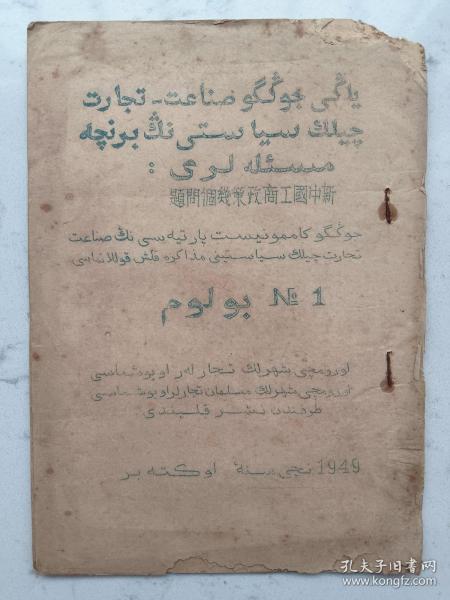 ياڭى جوڭگو صناعت - تجارت
چيلك سياستى نڭ برنچه
مسئله لرى :
新中國工商政策幾個問題
جوڭگو كاممونيست پارتيه سى نڭ صناعت
تجارت چيلك سياستينى مذاكره قلش قوللانماسى
№ 1 بولوم
اورومچى شهرلك تجارلر اويوشماسى
اورومچى شهرلك مسلمان تجارلر اويوشماسى
طرفندن نشر قليندى
1949 نچى سنۀ اوكتەبر
孔夫子旧书网
www.kongfz.com